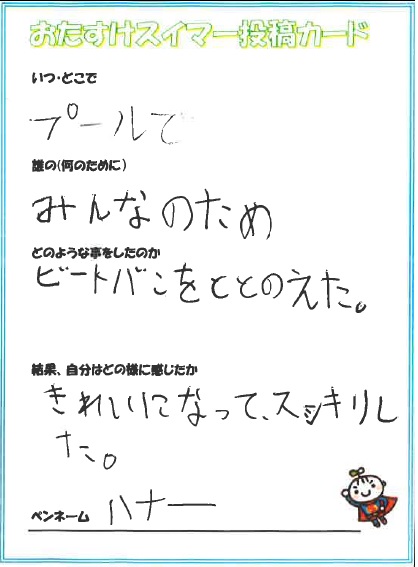 おたすけスイマー投稿カード
いつ・どこで
プールで
誰の(何のために)
みんなのため
どのような事をしたのか
ビートバンをととのえた。
結果、自分はどの様に感じたか
きれいになって、スッキリし
た。
ペンネーム ハナー